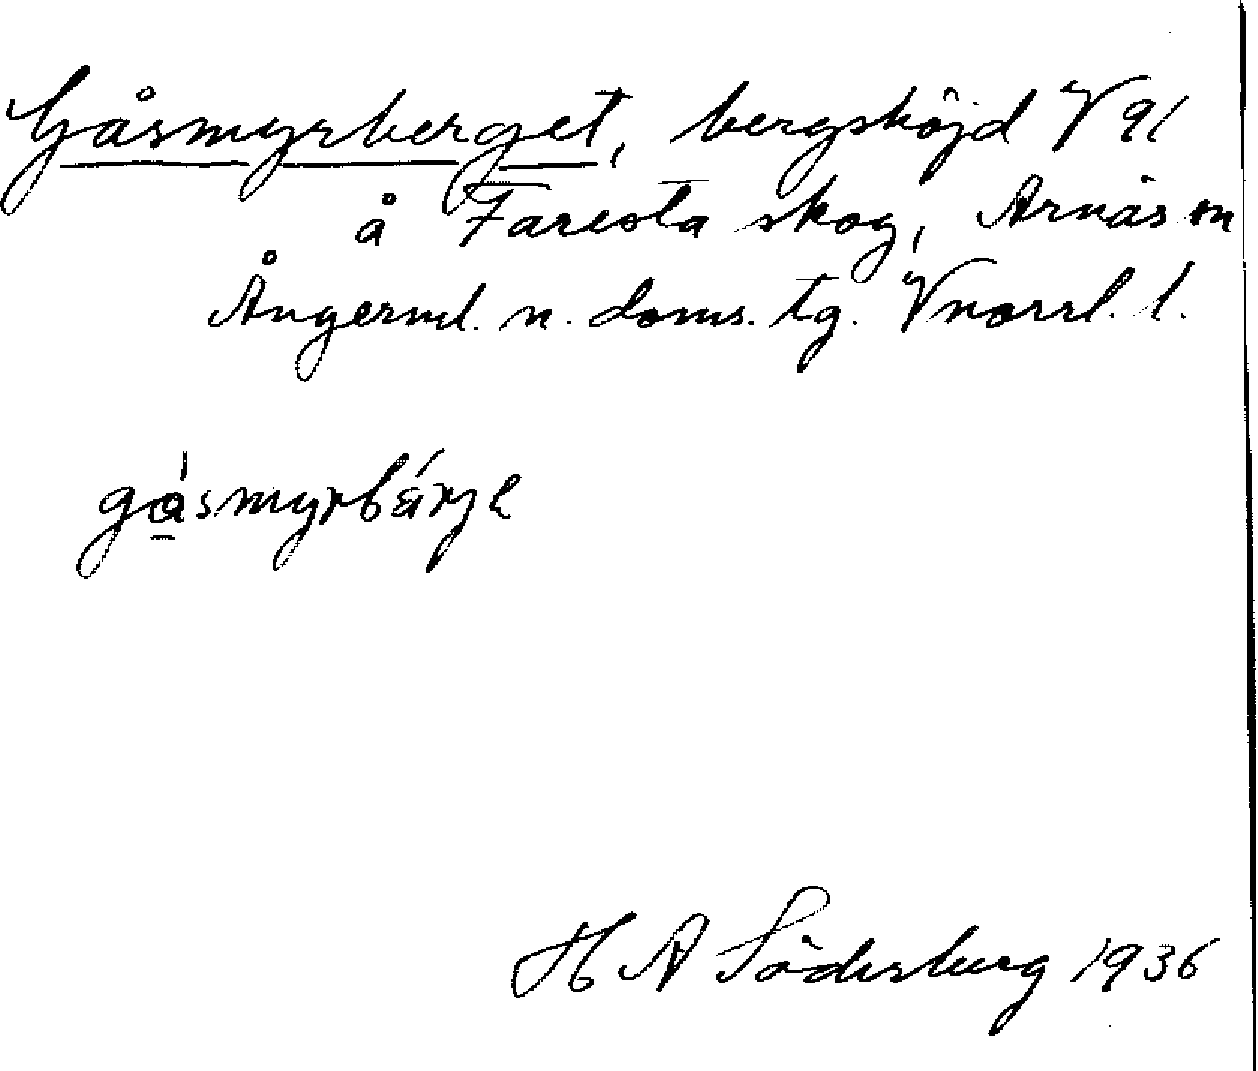 Gåsmyrberget, bergshöjd V 91
å Faresta skog, Arnäs sn
Ångerml. n. doms. tg. Vnorrl. l.
gåsmyrbärje
H A Söderberg 1936